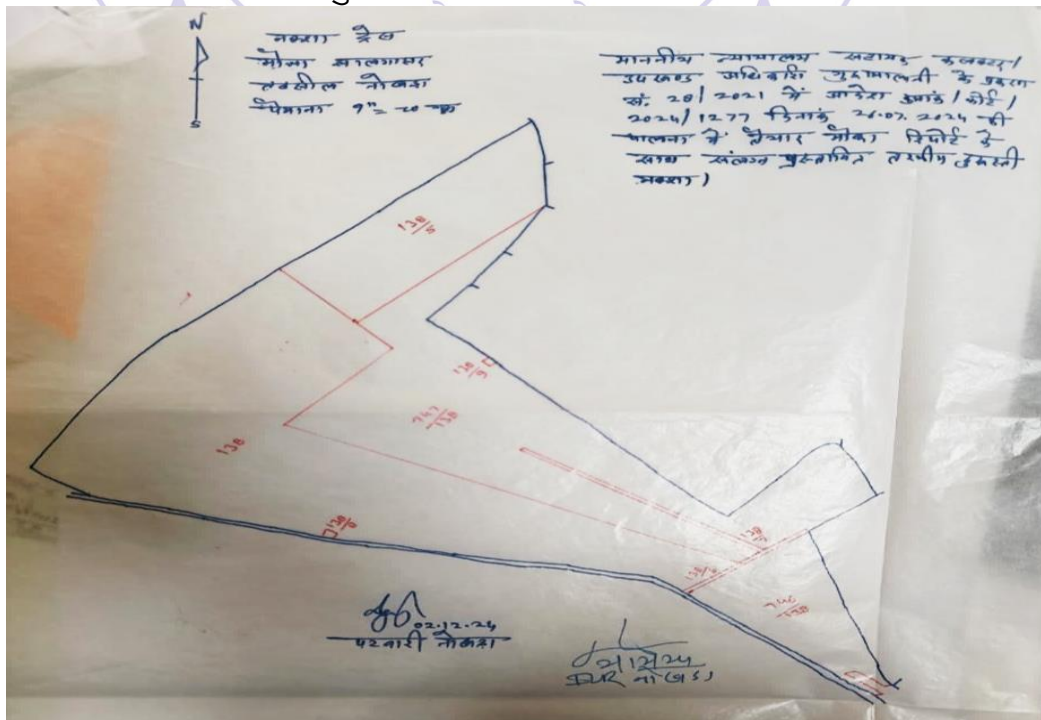 N
S
नक्शा ट्रेस
मौजा सालगासर
तहसील नोकडा
पैमाना 1"= 20
माननीय न्यायालय सहायक कलक्टर/
उपखण्ड अधिकारी गुडामालानी के प्रकरण
सं. 28/2021 में आदेश क्रमांक/कोर्ट/
2024/1277 दिनांक 26.07.2024 की
पालना में तैयार मौका रिपोर्ट के
साथ संलग्न प्रस्तावित तरमीम दुरुस्ती
नक्शा)
138/5
138/9
747/138
138
138
138
746/138
02.12.24
पटवारी नोकडा